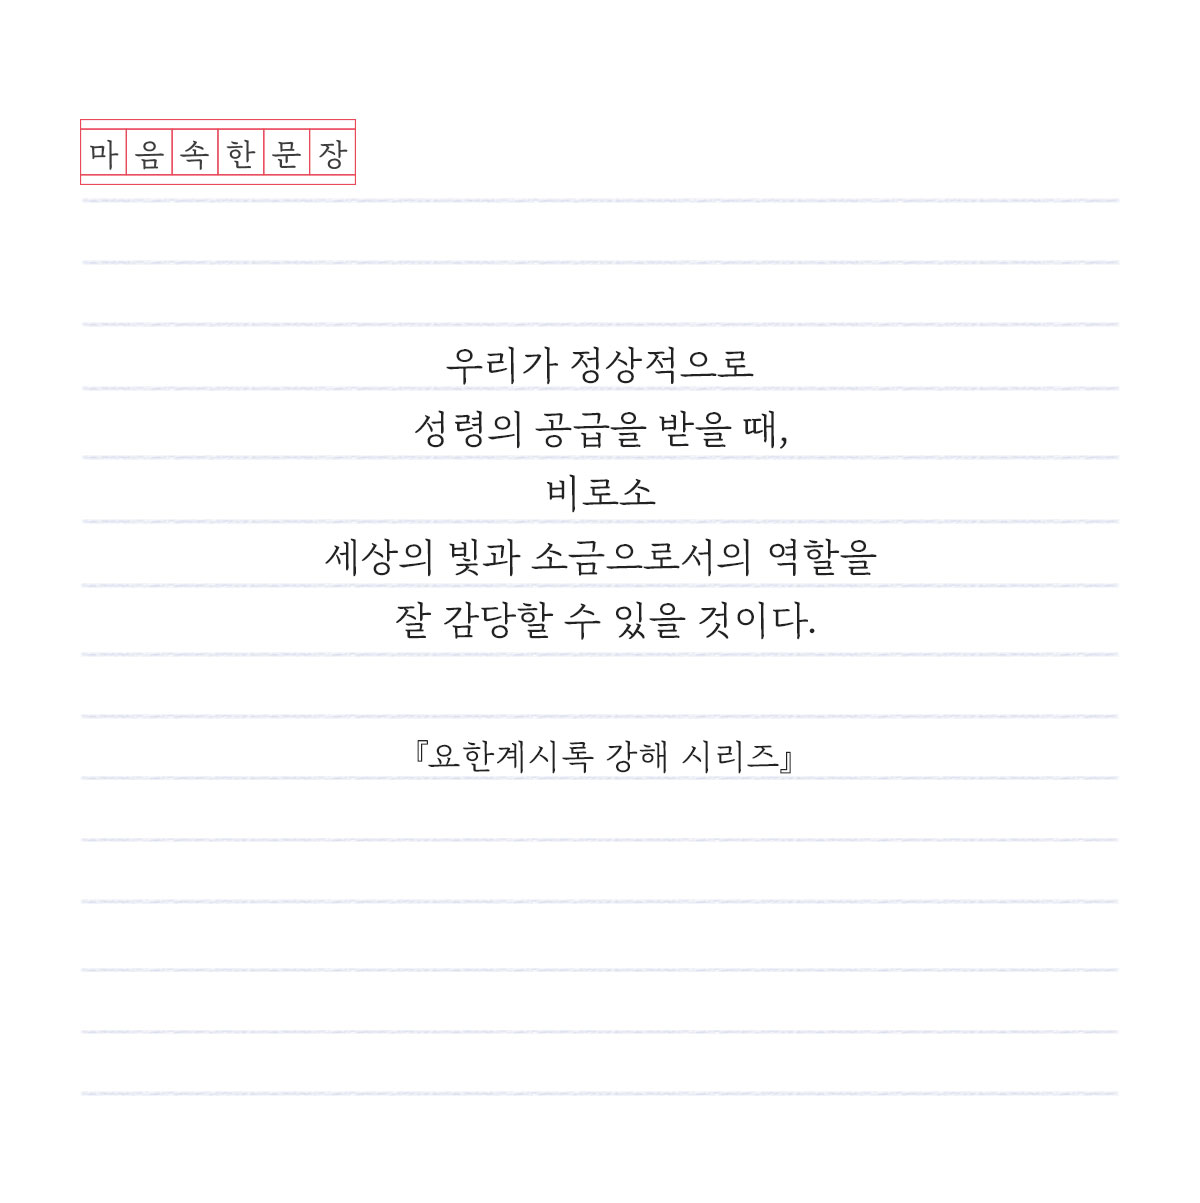 마음속한문장
우리가 정상적으로
성령의 공급을 받을 때,
비로소
세상의 빛과 소금으로서의 역할을
잘 감당할 수 있을 것이다.
『요한계시록 강해 시리즈』